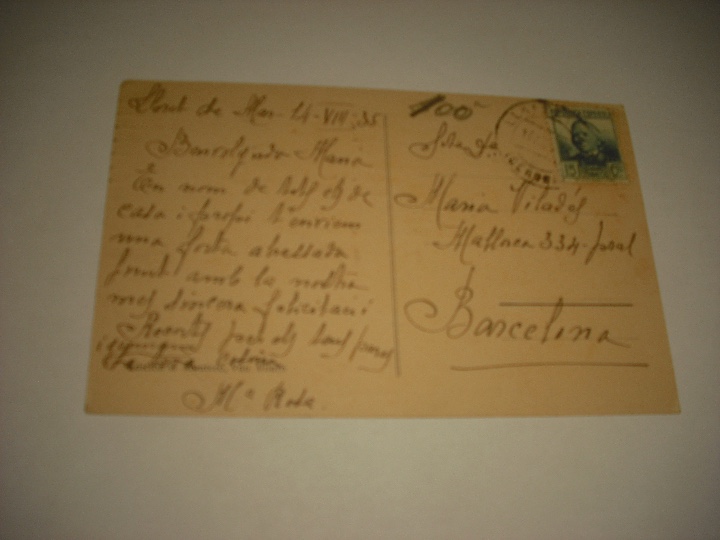 Lloret de Mar 14-VIII-35
Benvolguda Maria
En nom de tots els de
casa i propi t'enviem
una forta abraçada
junt amb la nostra
mes sincera felicitació
Records per els teus pares
i
Mª Rosa.
100
Srta.
Maria Viladós
Mallorca 334-pral
Barcelona
15